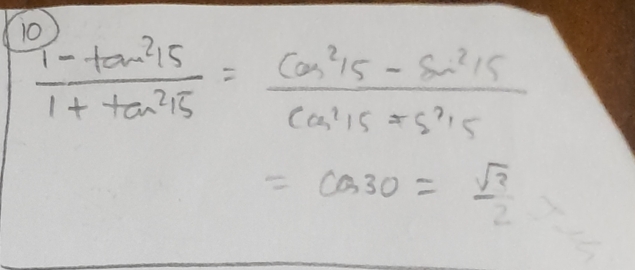 10
1 - tan²15 / 1 + tan²15 = Cos²15 - Sin²15 / Cos²15 + S²15
= Cos30 = √3/2